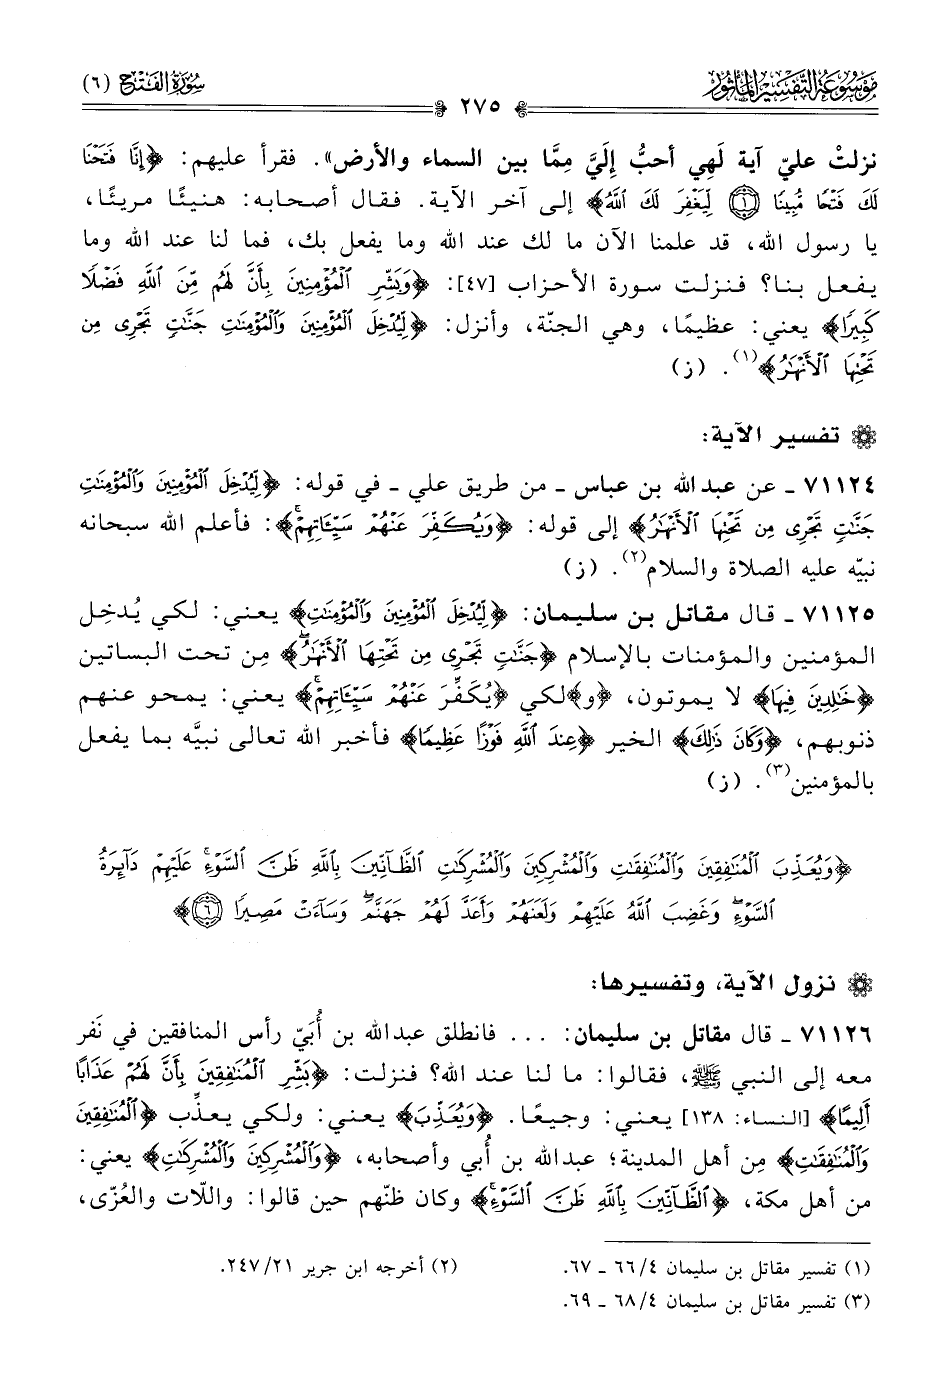 موسوعة التفسير المأثور
٢٧٥
سورة الفتح (٦)
نزلتْ عليّ آية لَهِي أحبُّ إِلَيَّ مِمَّا بين السماء والأرض». فقرأ عليهم: ﴿إِنَّا فَتَحْنَا
لَكَ فَتْحًا مُّبِينًا ۝١ لِّيَغْفِرَ لَكَ ٱللَّهُ﴾ إلى آخر الآية. فقال أصحابه: هنيئًا مريئًا،
يا رسول الله، قد علمنا الآن ما لك عند الله وما يفعل بك، فما لنا عند الله وما
يفعل بنا؟ فنزلت سورة الأحزاب [٤٧]: ﴿وَبَشِّرِ ٱلْمُؤْمِنِينَ بِأَنَّ لَهُم مِّنَ ٱللَّهِ فَضْلًا
كَبِيرًا﴾ يعني: عظيمًا، وهي الجنّة، وأنزل: ﴿لِّيُدْخِلَ ٱلْمُؤْمِنِينَ وَٱلْمُؤْمِنَٰتِ جَنَّٰتٍ تَجْرِى مِن
تَحْتِهَا ٱلْأَنْهَٰرُ﴾(١). (ز)
تفسير الآية:
٧١١٢٤ ـ عن عبدالله بن عباس ـ من طريق علي ـ في قوله: ﴿لِّيُدْخِلَ ٱلْمُؤْمِنِينَ وَٱلْمُؤْمِنَٰتِ
جَنَّٰتٍ تَجْرِى مِن تَحْتِهَا ٱلْأَنْهَٰرُ﴾ إلى قوله: ﴿وَيُكَفِّرَ عَنْهُمْ سَيِّـَٔاتِهِمْ ۚ﴾: فأعلم الله سبحانه
نبيّه عليه الصلاة والسلام(٢). (ز)
٧١١٢٥ ـ قال مقاتل بن سليمان: ﴿لِّيُدْخِلَ ٱلْمُؤْمِنِينَ وَٱلْمُؤْمِنَٰتِ﴾ يعني: لكي يُدخِل
المؤمنين والمؤمنات بالإسلام ﴿جَنَّٰتٍ تَجْرِى مِن تَحْتِهَا ٱلْأَنْهَٰرُ ۖ﴾ مِن تحت البساتين
﴿خَٰلِدِينَ فِيهَا﴾ لا يموتون، ﴿و﴾لكي ﴿يُكَفِّرَ عَنْهُمْ سَيِّـَٔاتِهِمْ ۚ﴾ يعني: يمحو عنهم
ذنوبهم، ﴿وَكَانَ ذَٰلِكَ﴾ الخير ﴿عِندَ ٱللَّهِ فَوْزًا عَظِيمًا﴾ فأخبر الله تعالى نبيَّه بما يفعل
بالمؤمنين(٣). (ز)
﴿وَيُعَذِّبَ ٱلْمُنَٰفِقِينَ وَٱلْمُنَٰفِقَٰتِ وَٱلْمُشْرِكِينَ وَٱلْمُشْرِكَٰتِ ٱلظَّآنِّينَ بِٱللَّهِ ظَنَّ ٱلسَّوْءِ ۚ عَلَيْهِمْ دَآئِرَةُ
ٱلسَّوْءِ ۖ وَغَضِبَ ٱللَّهُ عَلَيْهِمْ وَلَعَنَهُمْ وَأَعَدَّ لَهُمْ جَهَنَّمَ ۖ وَسَآءَتْ مَصِيرًا ۝٦﴾
نزول الآية، وتفسيرها:
٧١١٢٦ ـ قال مقاتل بن سليمان: ... فانطلق عبدالله بن أُبَيّ رأس المنافقين في نَفر
معه إلى النبي ﷺ، فقالوا: ما لنا عند الله؟ فنزلت: ﴿بَشِّرِ ٱلْمُنَٰفِقِينَ بِأَنَّ لَهُمْ عَذَابًا
أَلِيمًا﴾ [النساء: ١٣٨] يعني: وجيعًا. ﴿وَيُعَذِّبَ﴾ يعني: ولكي يعذِّب ﴿ٱلْمُنَٰفِقِينَ
وَٱلْمُنَٰفِقَٰتِ﴾ مِن أهل المدينة؛ عبدالله بن أُبي وأصحابه، ﴿وَٱلْمُشْرِكِينَ وَٱلْمُشْرِكَٰتِ﴾ يعني:
من أهل مكة، ﴿ٱلظَّآنِّينَ بِٱللَّهِ ظَنَّ ٱلسَّوْءِ ۚ﴾ وكان ظنّهم حين قالوا: واللّات والعُزّى،
(١) تفسير مقاتل بن سليمان ٤/ ٦٦ ـ ٦٧. (٢) أخرجه ابن جرير ٢١/ ٢٤٧.
(٣) تفسير مقاتل بن سليمان ٤/ ٦٨ ـ ٦٩.